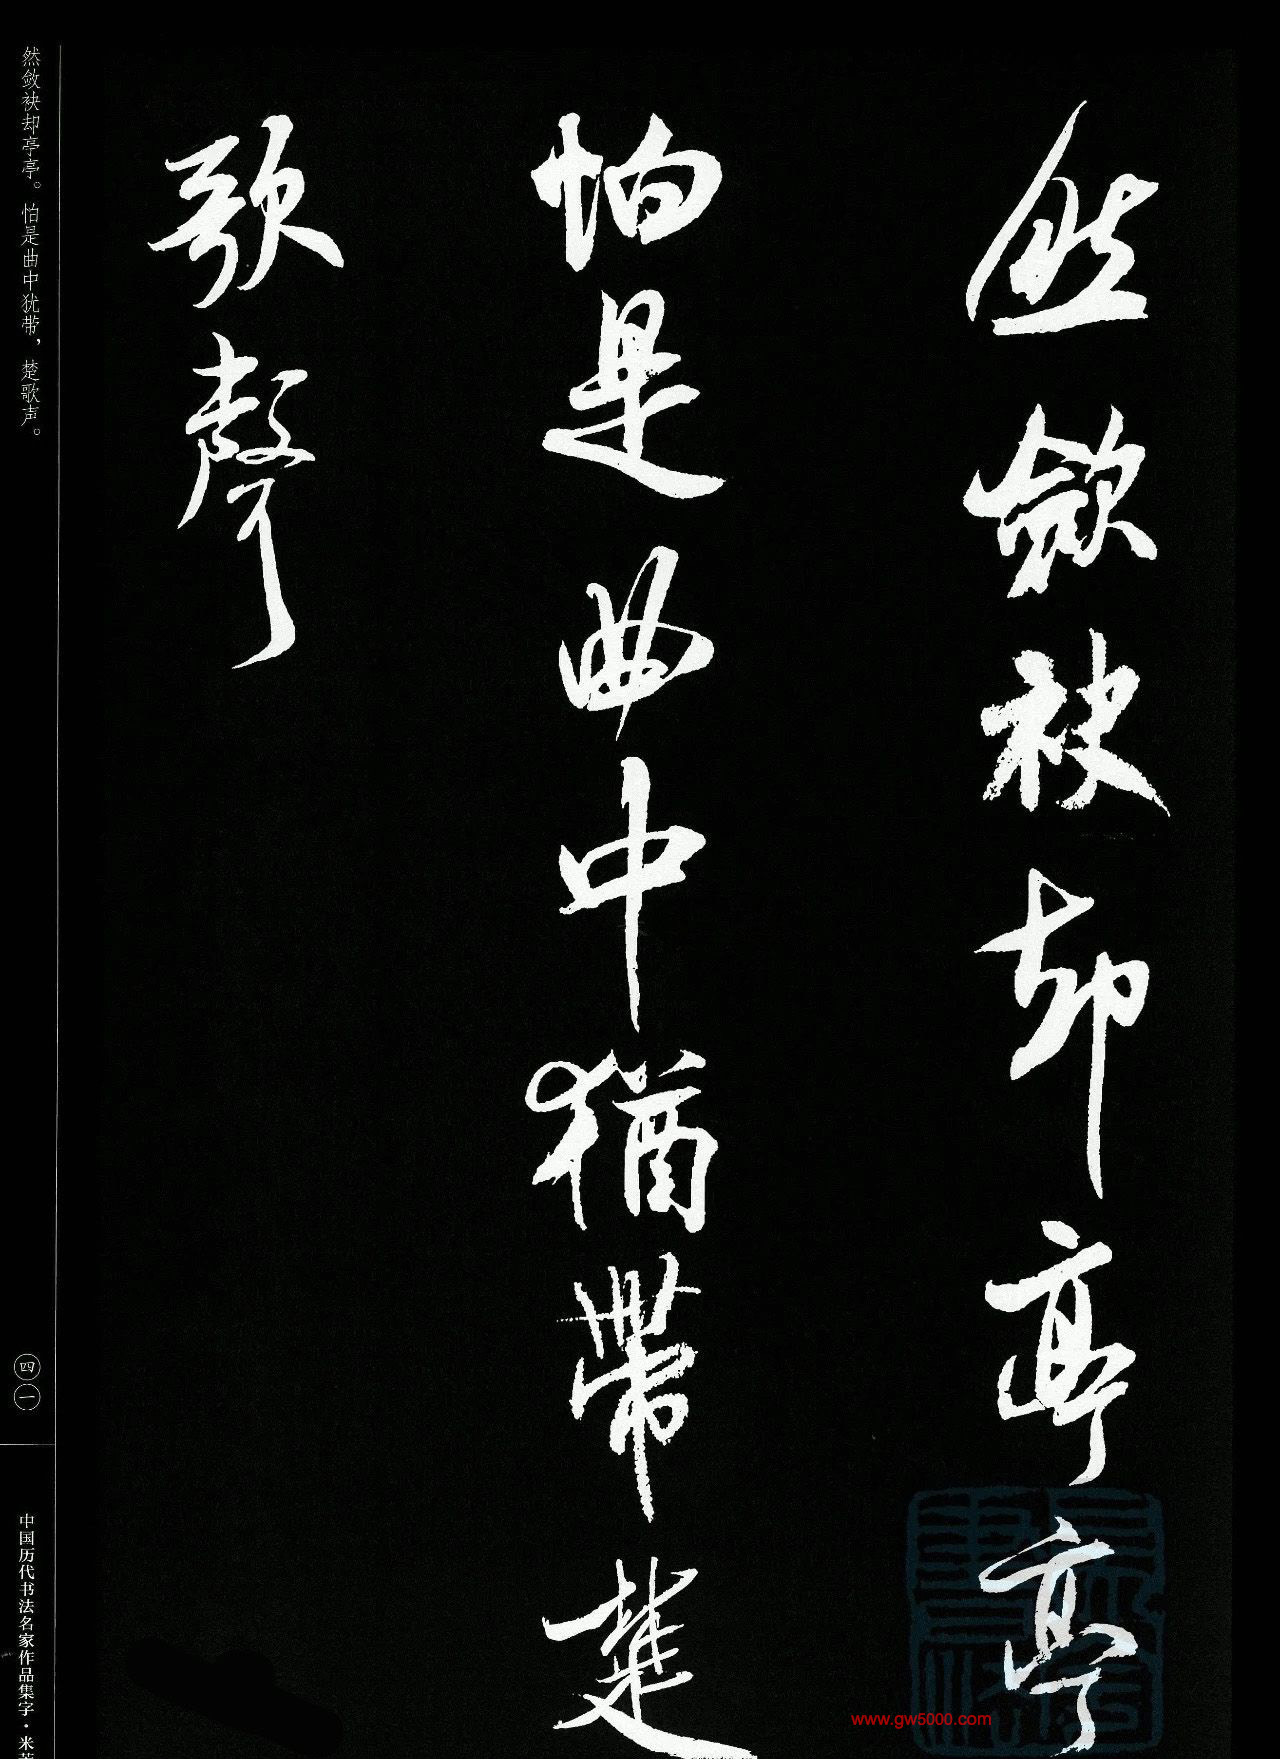 然斂袂却亭亭
怕是曲中猶帶楚
歌聲
然敛袂却亭亭。怕是曲中犹带，楚歌声。
四一
中国历代书法名家作品集字·米芾
www.gw5000.com